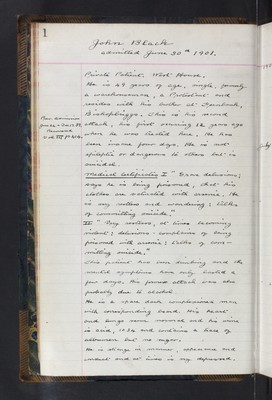 1
John Black
admitted June 30th 1901.
Private Patient. West House.
He is 49 years of age, single, formerly
a warehouseman, a Protestant and
resides with his brother at
Bishopbriggs. This is his second
attack, his first occurring 12 years ago
when he was treated here. He has
been insane four days. He is not
epileptic or dangerous to others but is
suicidal.
Medical Certificates I "Has delusions;
says he is being poisoned, that his
clothes are saturated with arsenic. He
is very restless and wandering; talks
of committing suicide"
II "Very restless, at times becoming
violent; delusions - complains of being
poisoned with arsenic; talks of com-
mitting suicide.
This patient has been drinking and the
mental symptoms have only lasted a
few days. His former attack was also
probably due to alcohol.
He is a spare dark complexioned man
with corresponding beard. His heart
and lungs seem normal and his urine
is acid, 1034 and contains a trace of
albumen but no sugar.
He is strange in manner, appearance and
conduct and at times is very depressed.